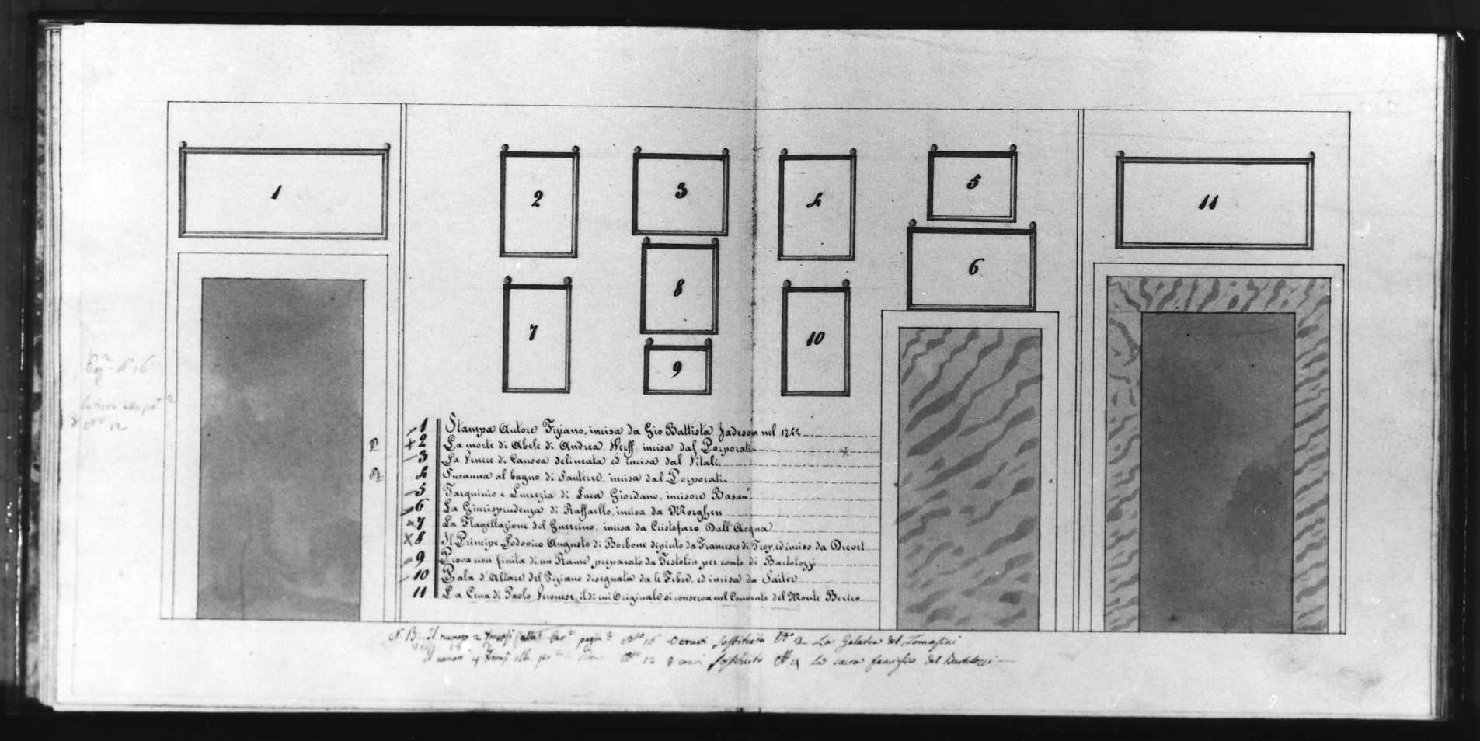 1
2
3
4
5
6
7
8
9
10
11
1 Stampa Autore Tiziano, incisa da Gio Battista Jackson nel
2 La morte di Abele di Andrea Werff, incisa dal Porporati
3 La Venere di Canova delineata ed incisa dal Vitali
4 Susanna al bagno di Santerre, incisa dal Porporati
5 Tarquinio e Lucrezia di Luca Giordano, incisore Basan
6 La Giurisprudenza di Raffaello, incisa da Morghen
7 La Flagellazione del Guercino, incisa da Cristofaro Dall'Acqua
8 Il Principe Lodovico Augusto di Borbone dipinto da Francesco di Troy, ed inciso da Drevet
9 Prova non finita di un Rame, preparato da Testolin per conto di Bartolozzi
10 Pala d'Altare del Tiziano disegnata da le Febre, ed incisa da Saiter
11 La Cena di Paolo Veronese, il di cui Originale si conserva nel Convento del Monte Berico
N. B. Il numero 2 pagina N. 16 sostituita La Galatea del Tomasini
Il numero N. 12 sostituito La sacra famiglia del Bartolozzi